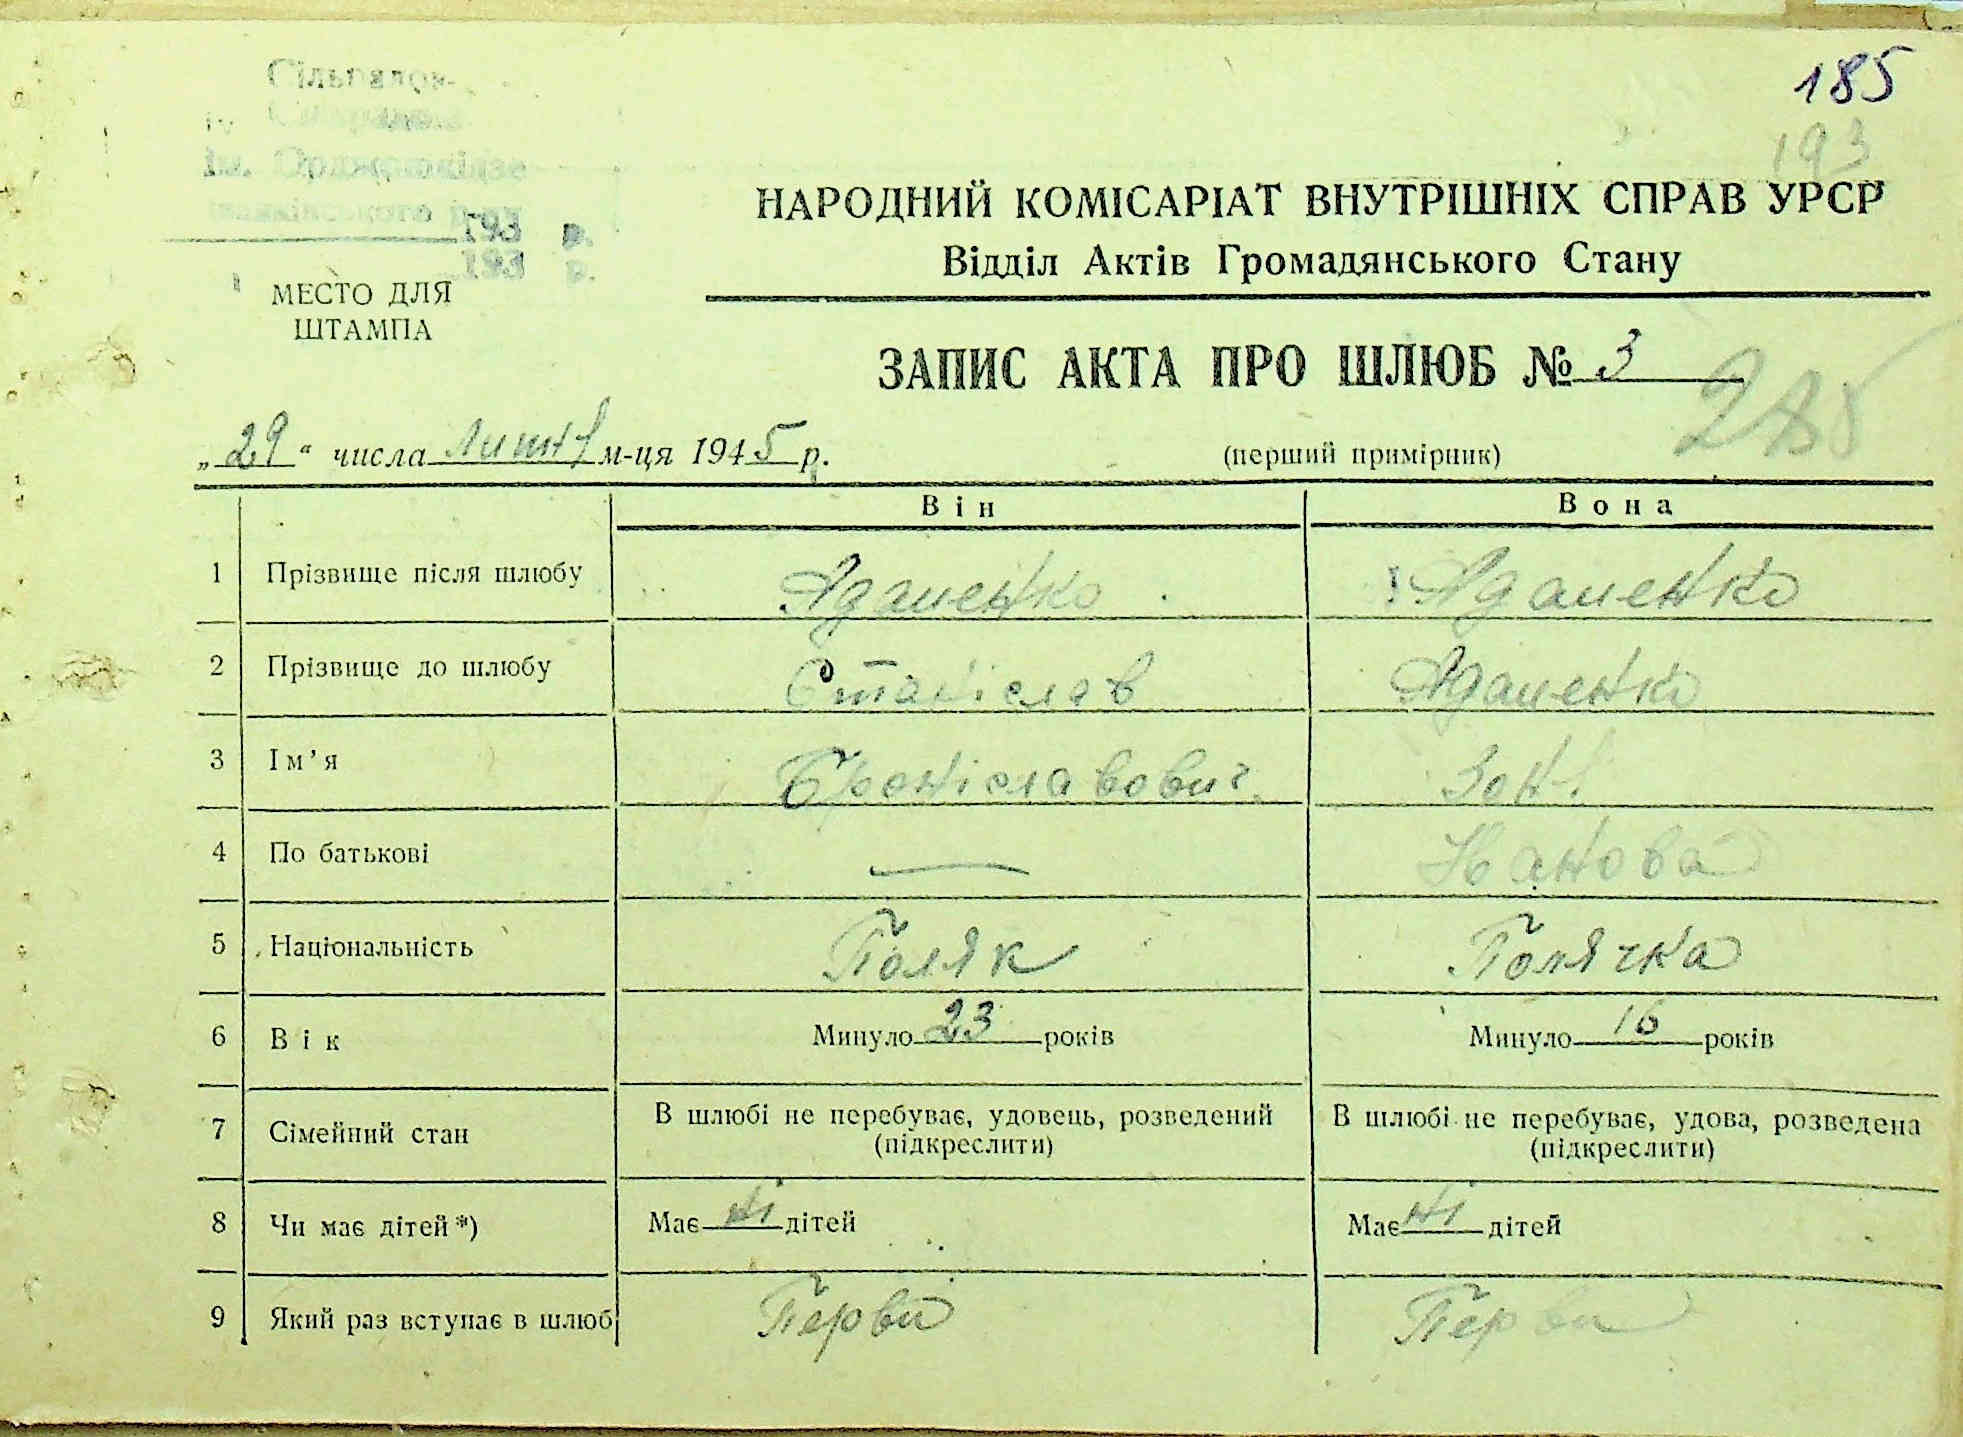 185
193
Сільрадою
ім. Орджонікідзе
193 р.
193 р.
МЕСТО ДЛЯ
ШТАМПА
НАРОДНИЙ КОМІСАРІАТ ВНУТРІШНІХ СПРАВ УРСР
Відділ Актів Громадянського Стану
ЗАПИС АКТА ПРО ШЛЮБ № 3
„29“ числа м-ця 1945 р.
(перший примірник)
Він Вона
1 Прізвище після шлюбу Адаменко Адаменко
2 Прізвище до шлюбу Станіслав Адаменко
3 Ім’я Броніславович Зоня
4 По батькові — Іванова
5 Національність Поляк Полячка
6 Вік Минуло 23 років Минуло 16 років
7 Сімейний стан В шлюбі не перебуває, удовець, розведений (підкреслити) В шлюбі не перебуває, удова, розведена (підкреслити)
8 Чи має дітей*) Має ні дітей Має ні дітей
9 Який раз вступає в шлюб Перви Перви